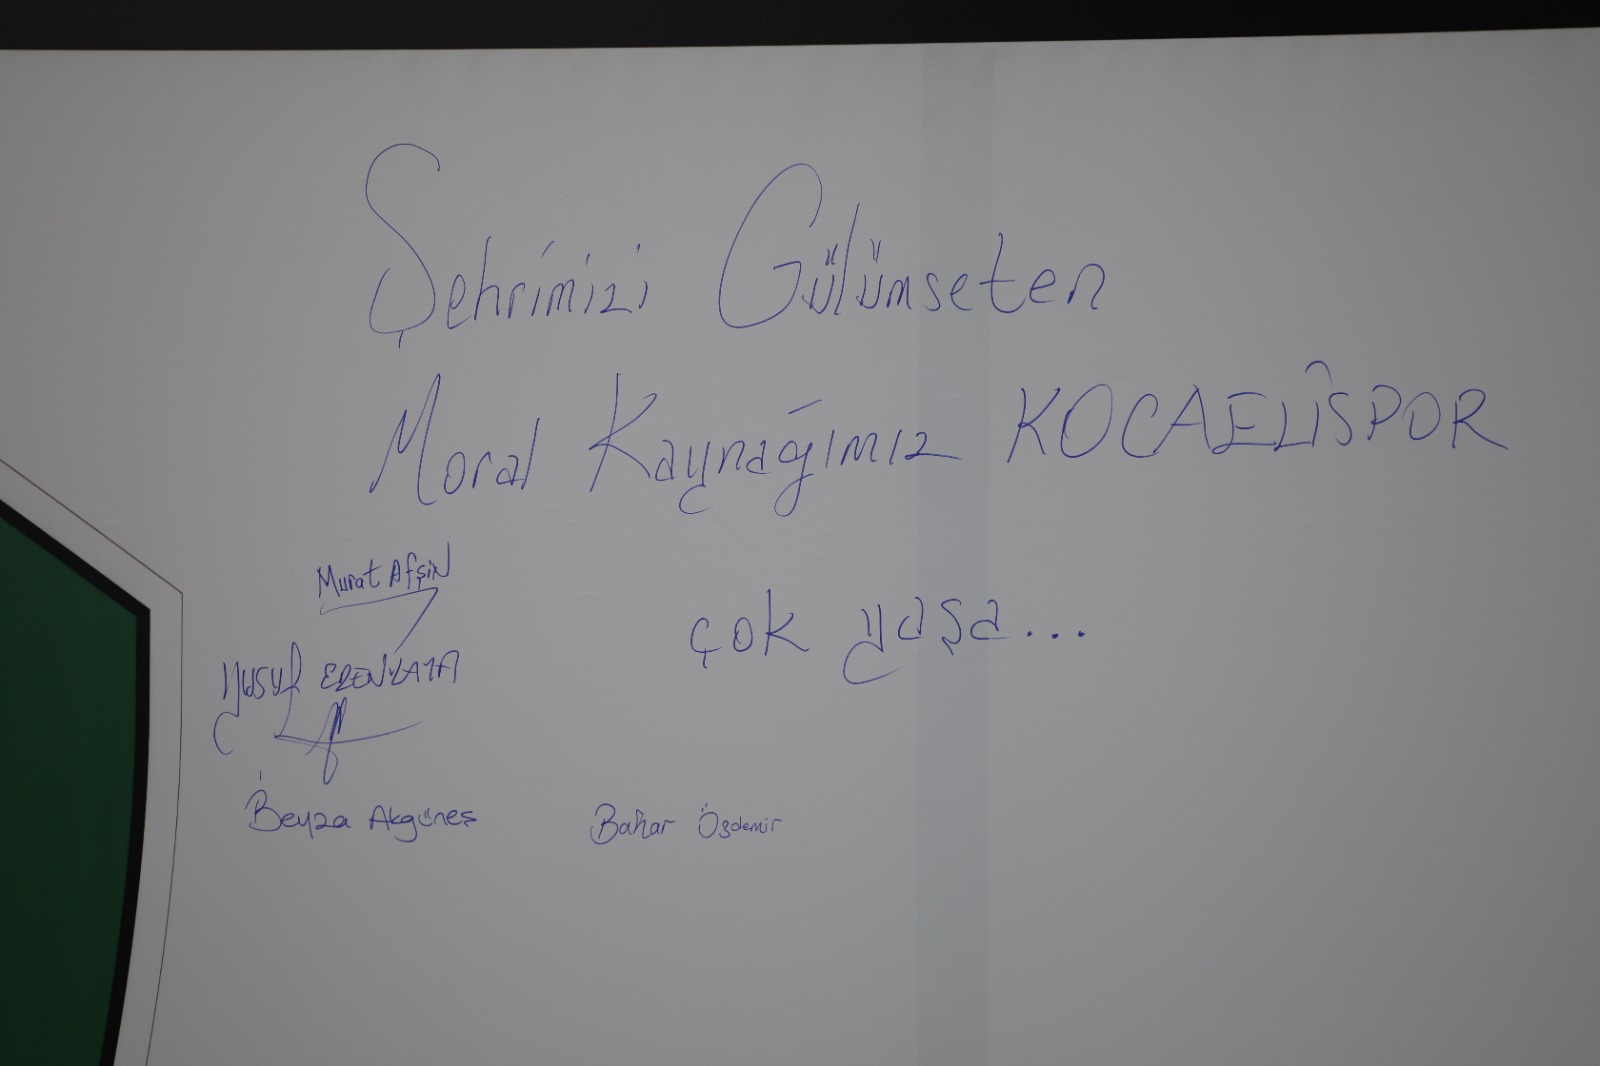 Şehrimizi Gülümseten
Moral Kaynağımız KOCAELİSPOR
çok yaşa...
Murat Afşin
Yusuf ERENKAYA
Beyza Akgüneş
Bahar Özdemir